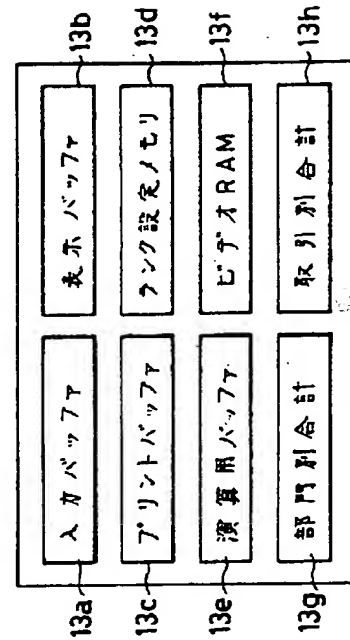 13a 入力バッファ
13b 表示バッファ
13c プリントバッファ
13d ランク設定メモリ
13e 演算用バッファ
13f ビデオRAM
13g 部門別合計
13h 取引別合計